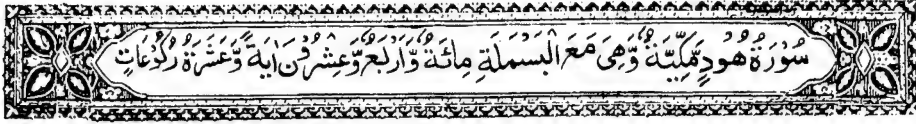 سُوْرَةُ هُوْدٍ مَّكِّيَّةٌ وَّهِيَ مَعَ الْبَسْمَلَةِ مِائَةٌ وَّأَرْبَعٌ وَّعِشْرُوْنَ اٰيَةً وَّعَشَرَةُ رُكُوْعَاتٍ